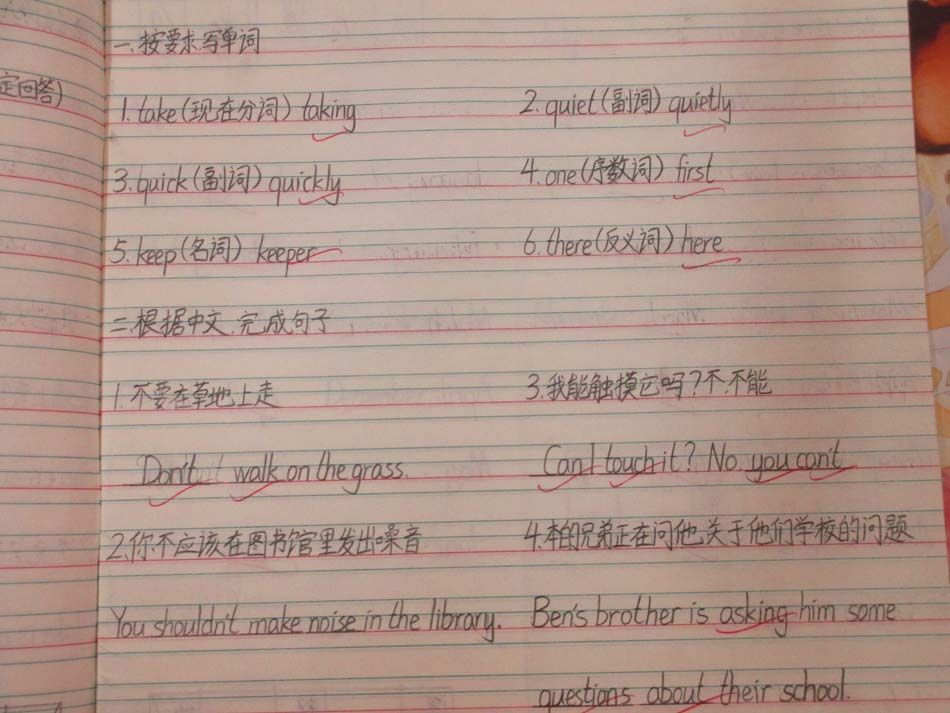 定回答)
一.按要求.写单词
1.take(现在分词) taking 2.quiet(副词) quietly
3.quick(副词) quickly 4.one(序数词) first
5.keep(名词) keeper 6.there(反义词) here
二.根据中文.完成句子
1.不要在草地上走 3.我能触摸它吗?不.不能
Don't walk on the grass. Can I touch it? No. you can't
2.你不应该在图书馆里发出噪音 4.本的兄弟正在问他关于他们学校的问题
You shouldn't make noise in the library. Ben's brother is asking him some
questions about their school.